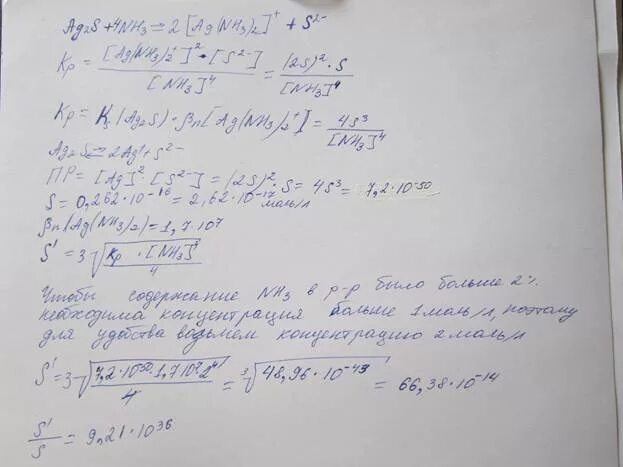 Ag₂S + 4NH₃ ⇌ 2 [Ag(NH₃)₂]⁺ + S²⁻
Kp = [Ag(NH₃)₂⁺]² · [S²⁻] / [NH₃]⁴ = (2S)² · S / [NH₃]⁴
Kp = Ks (Ag₂S) · βn [Ag(NH₃)₂⁺] = 4S³ / [NH₃]⁴
Ag₂S ⇌ 2Ag⁺ + S²⁻
ПР = [Ag]² · [S²⁻] = (2S)² · S = 4S³ = 7,2·10⁻⁵⁰
S = 0,262·10⁻¹⁶ = 2,62·10⁻¹⁷ моль/л
βn(Ag(NH₃)₂) = 1,7·10⁷
S' = 3√(Kp · [NH₃]⁴ / 4)
Чтобы содержание NH₃ в р-р было больше 2%
необходима концентрация больше 1моль/л, поэтому
для удобства возьмем концентрацию 2моль/л
S' = 3√(7,2·10⁻⁵⁰·1,7·10⁷·2⁴ / 4) = ³√(48,96·10⁻⁴³) = 66,38·10⁻¹⁴
S'/S = 9,21·10³⁶